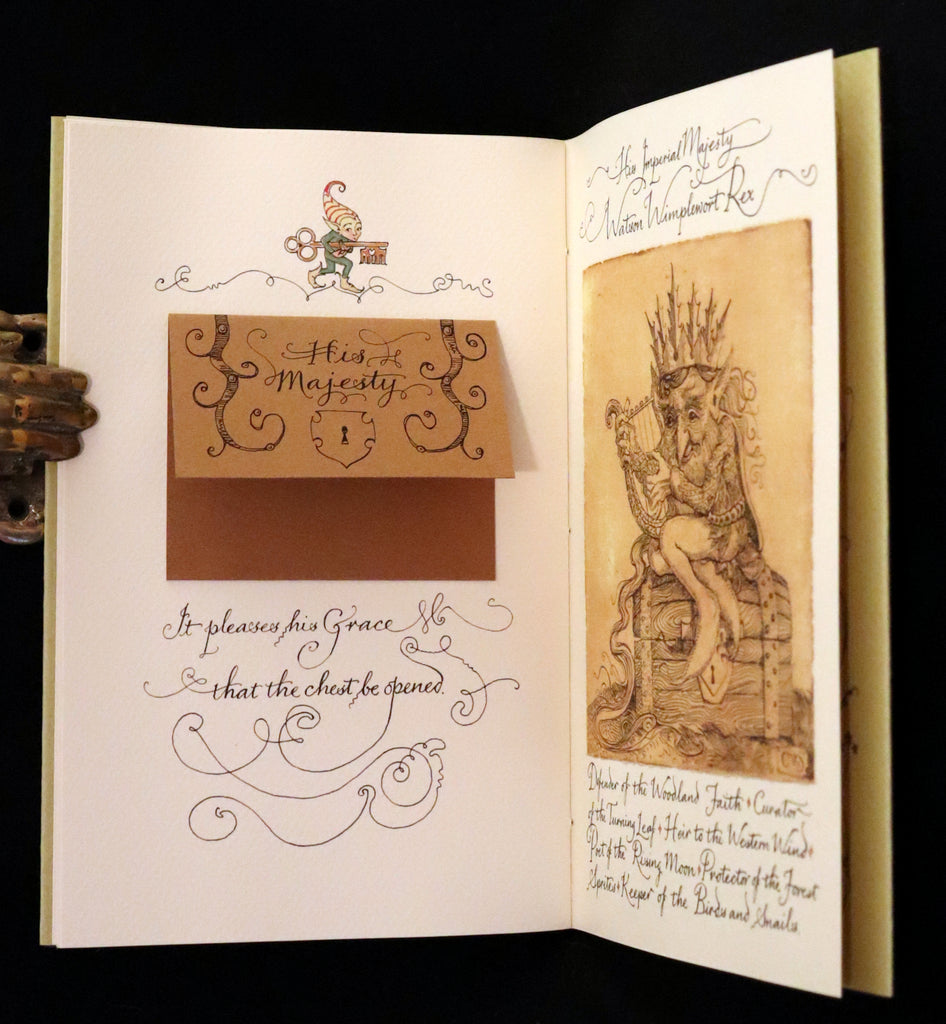 His
Majesty
It pleases his Grace
that the chest be opened.
His Imperial Majesty
Watson Wimplewort Rex
Defender of the Woodland Faith + Curator
of the Turning Leaf + Heir to the Western Wind +
Poet of the Rising Moon + Protector of the Forest
Sprites + Keeper of the Birds and Snails